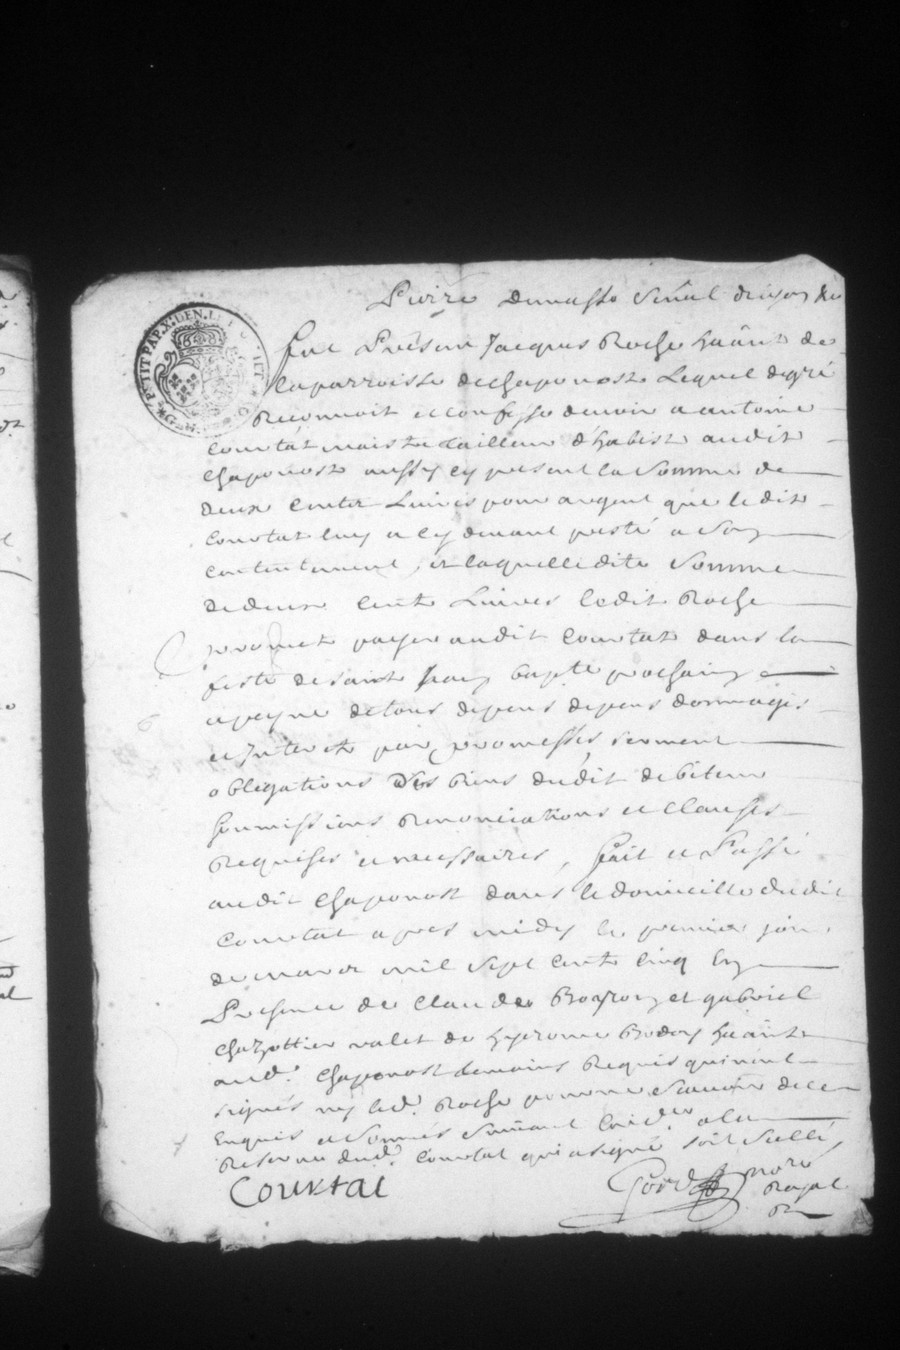 PETIT PAP. X. DEN. LE
Fut Présent Jacques Roche haânt de
laparroisse dechaponost Lequel degré
Reconnoit et confesse devoir a antoine
Courtat maistre tailleur d'habist audit
chaponost aussy cy present la Somme de
deux cents Livres pour argent que ledit
Courtat luy a cy devant presté a Son
contentement, et laquelledite Somme
dedeux cents Livres ledit Roche
promet payer audit Courtat dans la
feste de saint Jean baptte prochain
apeyne detous depens depens dommages
et Interets par promesses serment
obligations des biens dudit debiteur
soumissions Renonciations et Clauses
Requises et necessaires, fait et Passé
audit Chaponost dans le domicille dudit
Courtat apres midy le premier jour
de mars mil sept cents cinq En
Presence de Claude et gabriel
valet de hyerome haânt
aud. Chaponost temoins Requis quinont
signés ny led. Roche pour ne Scavoir dece
Enquis et Sommés Suivant a la
Reserve dud. Courtat qui a signé soit Scellé
Courtai
Royal